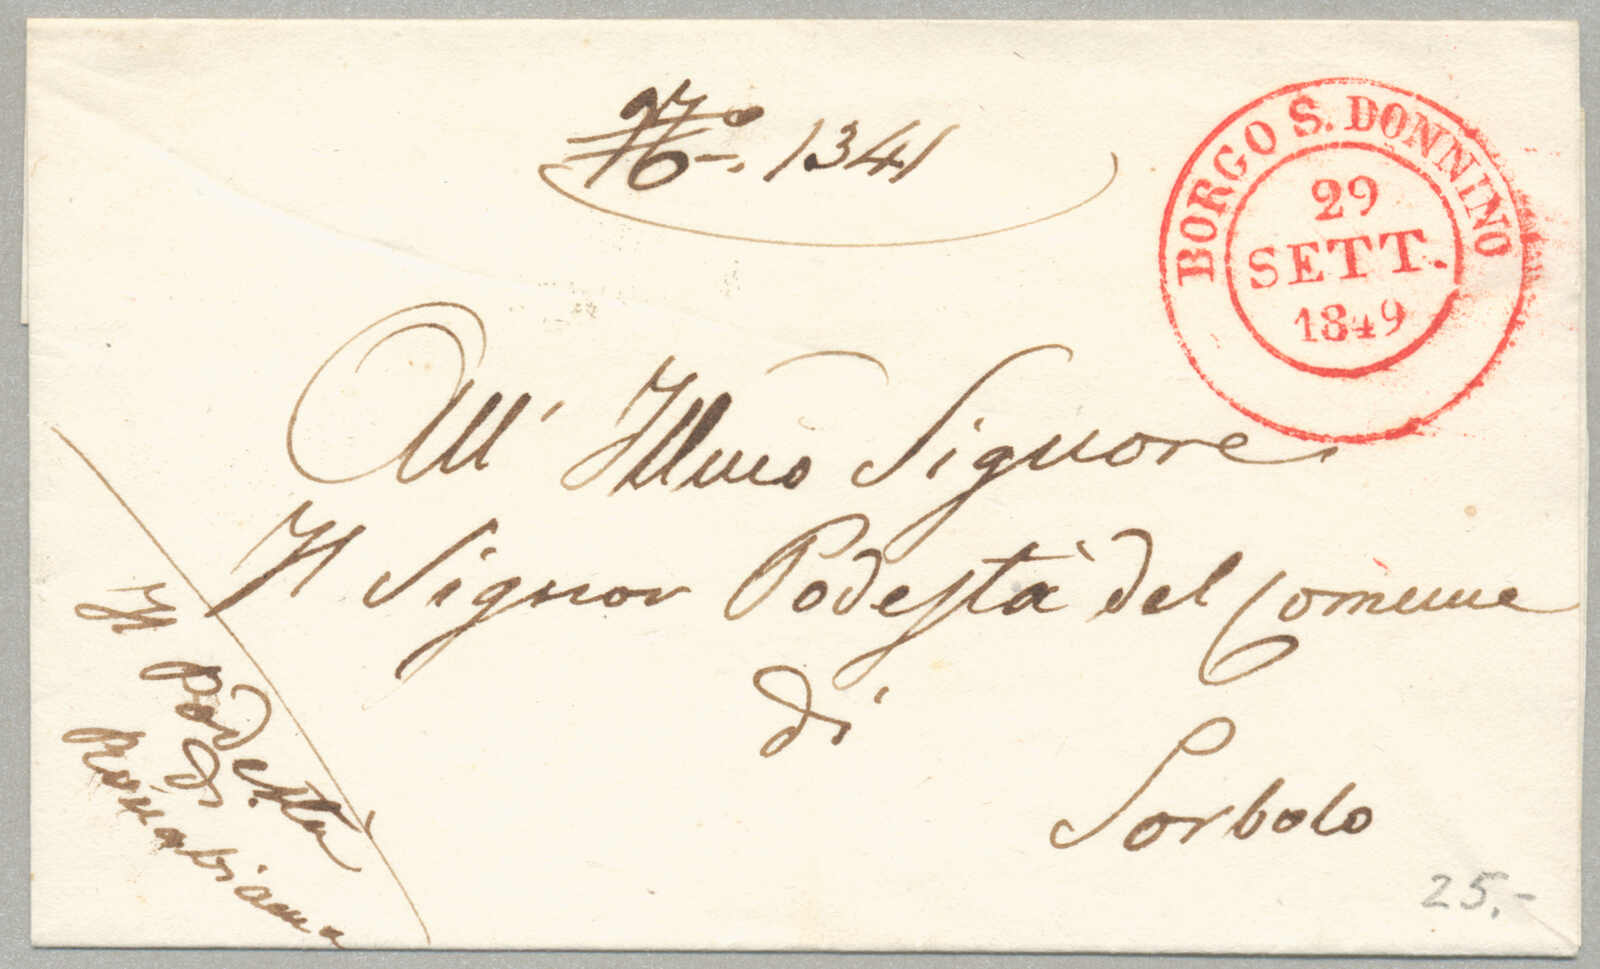 N.° 1341
BORGO S. DONNINO
29
SETT.
1849
All' Illmo Signore
Il Signor Podestà del Comune
di
Sorbolo
Il Podestà
di
25.-